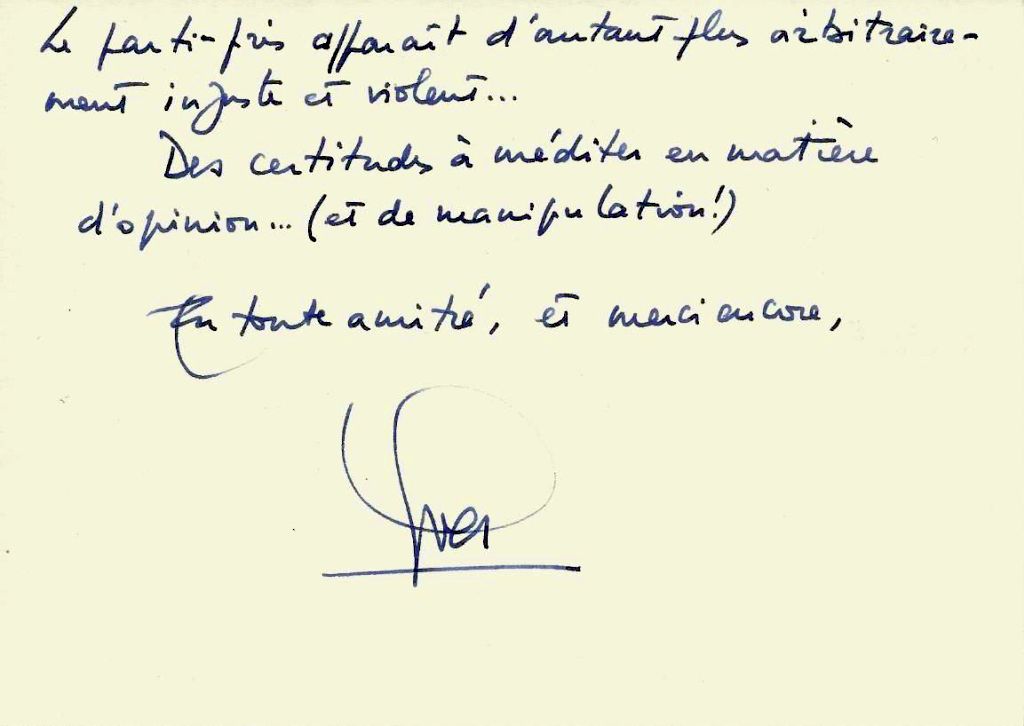 Le parti-pris apparaît d'autant plus arbitraire-
ment injuste et violent...
Des certitudes à méditer en matière
d'opinion... (et de manipulation!)
En toute amitié, et merci encore,
Yves